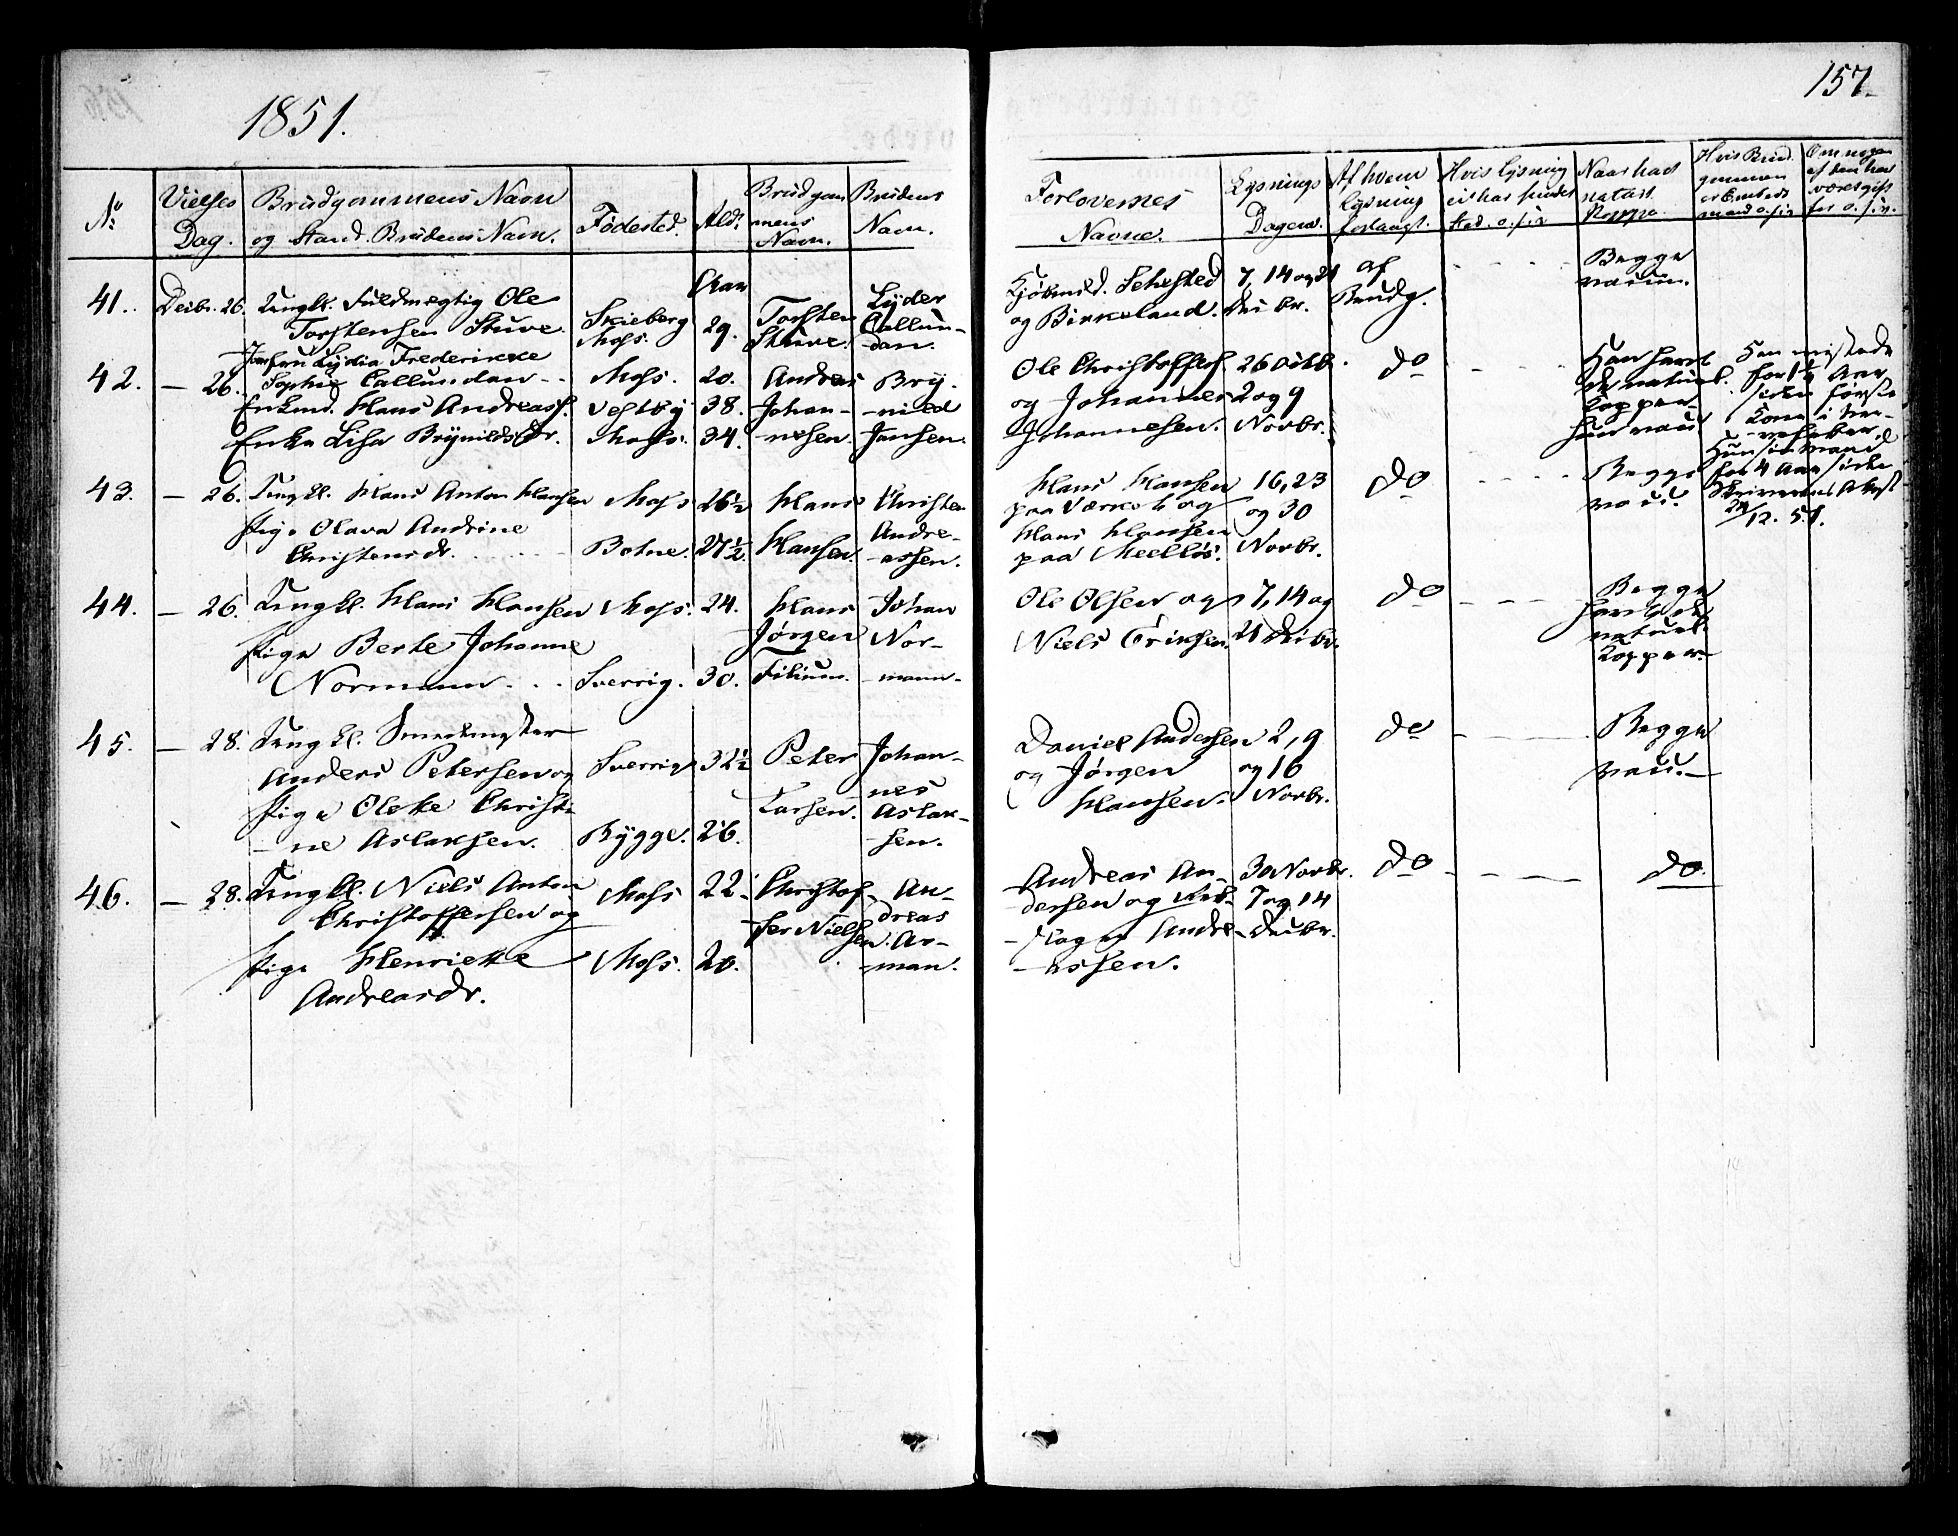 1851.
157
No
Vielses
Dag.
Brudgommens Navn
og Stand. Brudens Navn.
Fødested.
Ald.
Brudgom
mens
Navn.
Brudens
Navn.
Forlovernes
Navne.
Lysnings
Dagene.
Af hvem
Lysning
forlangt.
Hvis Lysning
ei har fundet
Sted. o.s.v.
Naar havt
naturl.
Koppe
Hvis Brud
gommen
er Embeds
mand o.s.v.
Om nogen
af dem har
været gift
før o.s.v.
41. Decbr. 26. Ungk. Fuldmægtig Ole
Torstensen Stuve.
Jomfru Lydia Frederikke
Sophie Callundan
Skieberg
Moss.
Moss.
Aar
29.
20.
Torsten
Stuve.
Lyder
Callun-
dan.
Kjøbmd. Sehested
og Birkeland.
7, 14 og 21
Decbr.
af
Brudg.
Begge
vaccin.
42. - 26.
Enkmd. Hans Andreass.
Enke Lisa Brynildsdr.
Vestby
Moss.
38.
34.
Andreas
Johan-
nesen.
Bry-
nild
Jansen.
Ole Christoffers.
og Johannes
Johannesen.
26 Octbr.
2 og 9
Novbr.
do
Han havt
de naturl.
Kopper
hun vacc.
Han mistede
for 1½ Aar
siden første
Kone i
Hun sin Mand
for 4 Aar siden
Skriverens Attest
24/12. 51.
43. - 26. Ungkl. Hans Anton Hansen
Pige Olava Andrine
Christensdr.
Moss
Botne.
26½
27½
Hans
Hansen.
Christen
Andre-
assen.
Hans Hansen
paa Værket og
Hans Hansen
paa Melløs.
16, 23
og 30
Novbr.
do
Begge
vacc.
44. - 26. Ungkl. Hans Hansen
Pige Berte Johanne
Normann
Moss.
Sverrig.
24.
30.
Hans
Jørgen
Filium.
Johan
Nor-
mann.
Ole Olsen og
Niels Eriksen.
7, 14 og
21 Decbr.
do
Begge
havt de
naturl.
Kopper.
45. - 28. Ungkl. Smedmester
Anders Petersen og
Pige Oleke Christi-
ne Aslaksen.
Sverrig
Rygge.
32½
26.
Peter
Larsen.
Johan-
nes
Aslak-
sen.
Daniel Andersen
og Jørgen
Hansen.
2, 9
og 16
Novbr.
do
Begge
vacc.
46. - 28. Ungkl. Niels Anton
Christoffersen og
Pige Henriette
Andreasdr.
Moss
Moss.
22.
20.
Christof-
fer Nielsen.
An-
dreas
Ar-
man.
Andreas An-
dersen og
Andre-
assen.
30 Novbr.
7 og 14
Decbr.
do
do.